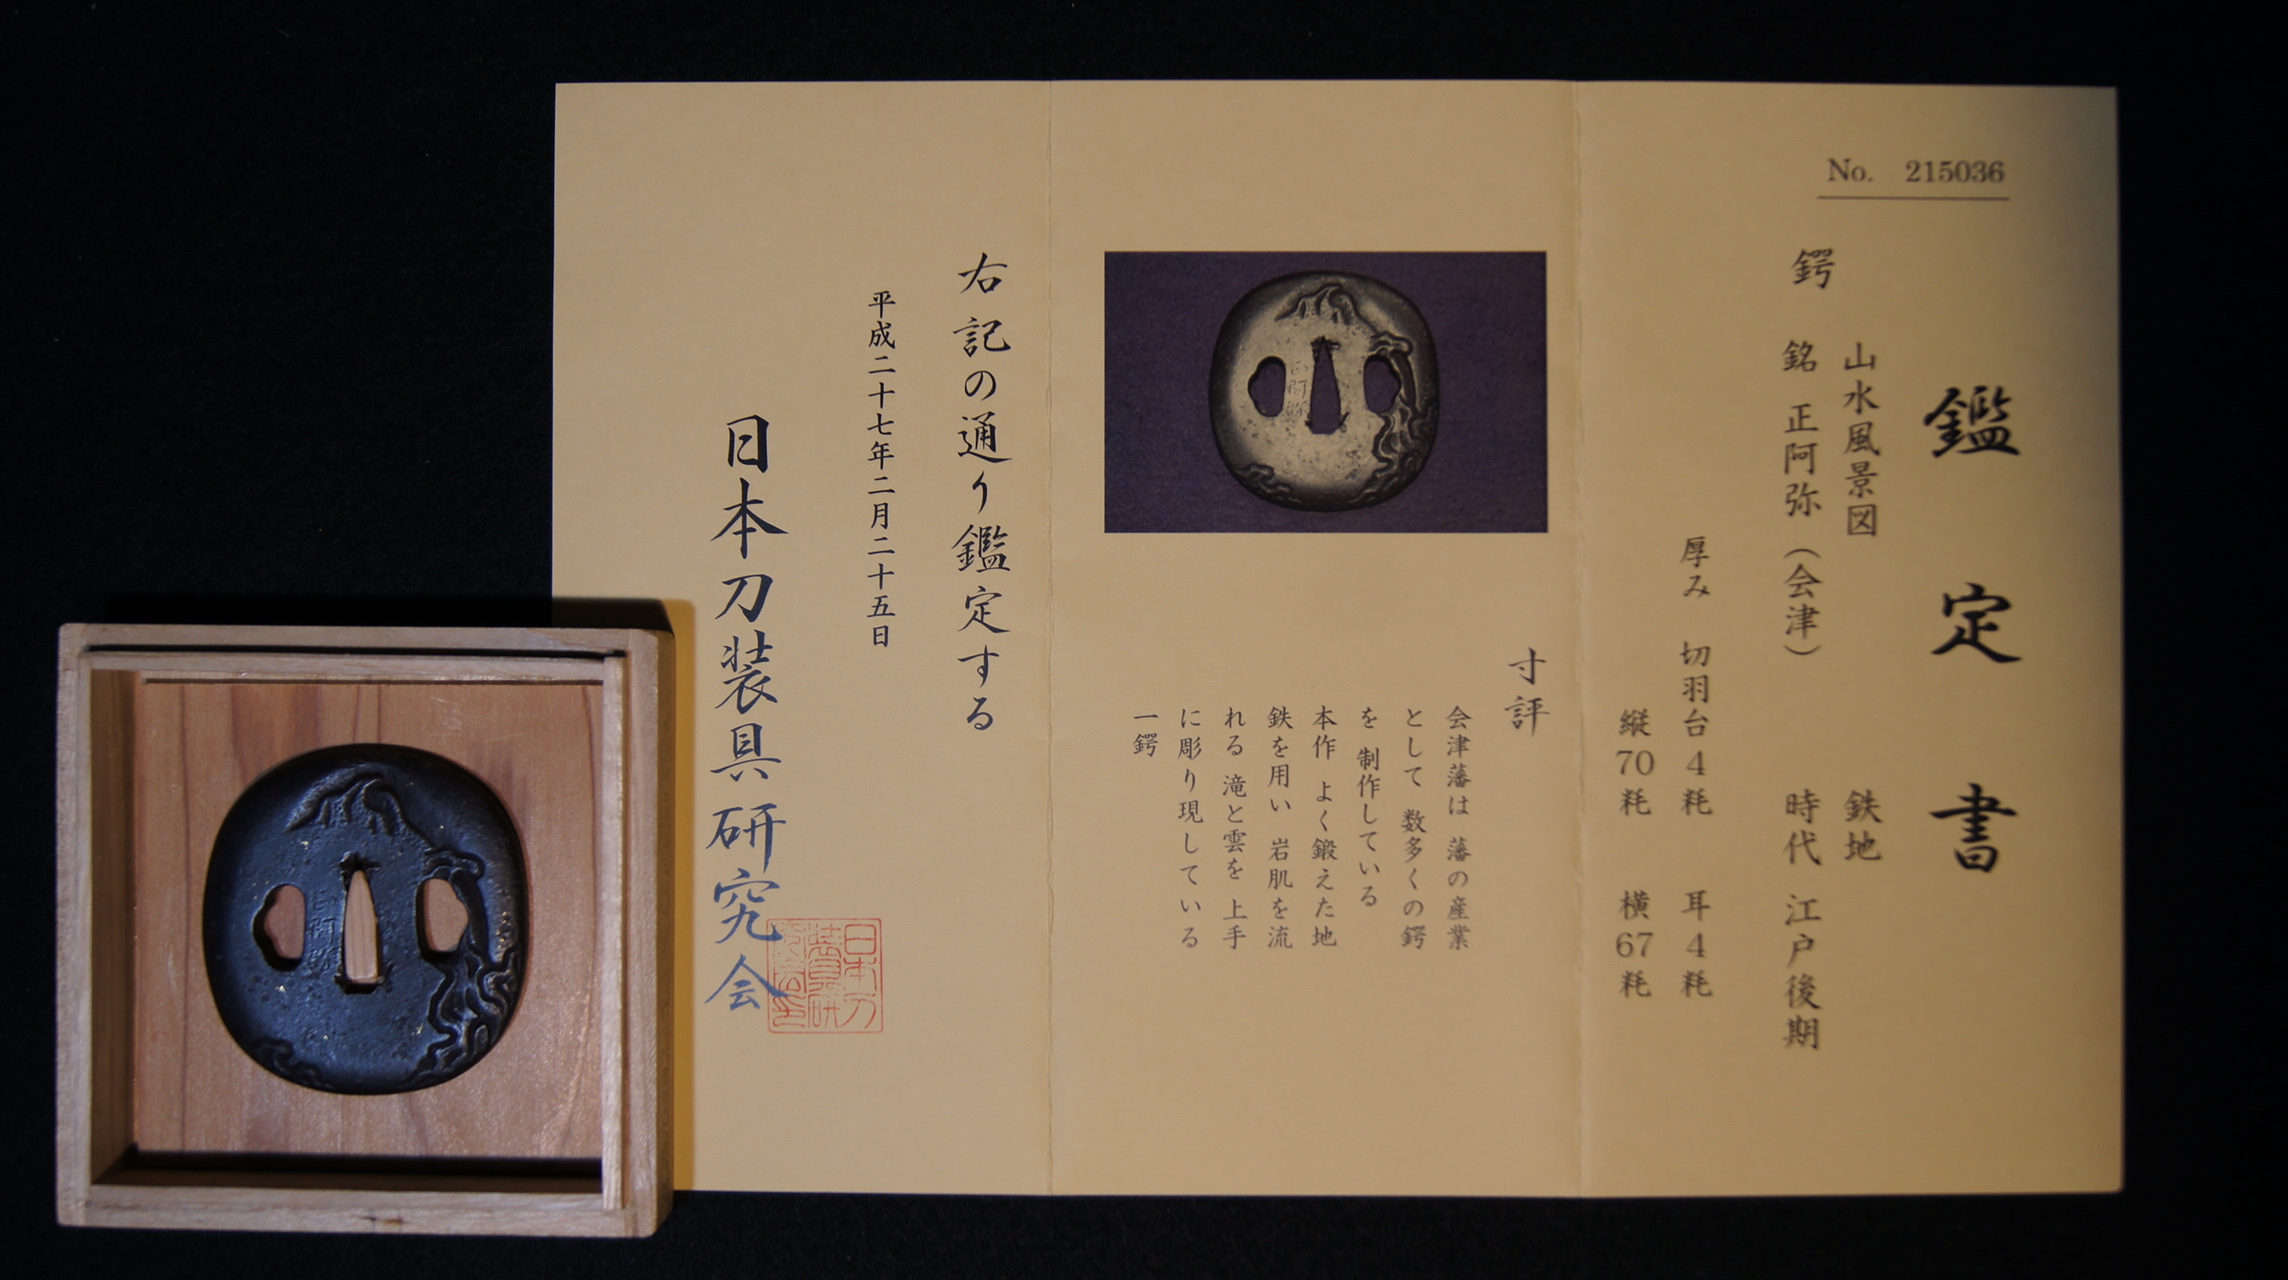 No. 215036
鑑定書
山水風景図 鉄地
鍔 銘 正阿弥（会津） 時代 江戸後期
厚み 切羽台4粍 耳4粍
縦70粍 横67粍
寸評
会津藩は 藩の産業
として 数多くの鍔
を 制作している
本作 よく鍛えた地
鉄を用い 岩肌を流
れる 滝と雲を 上手
に彫り現している
一鍔
右記の通り鑑定する
平成二十七年二月二十五日
日本刀装具研究会
日本刀
装具研
究会之印
正阿弥